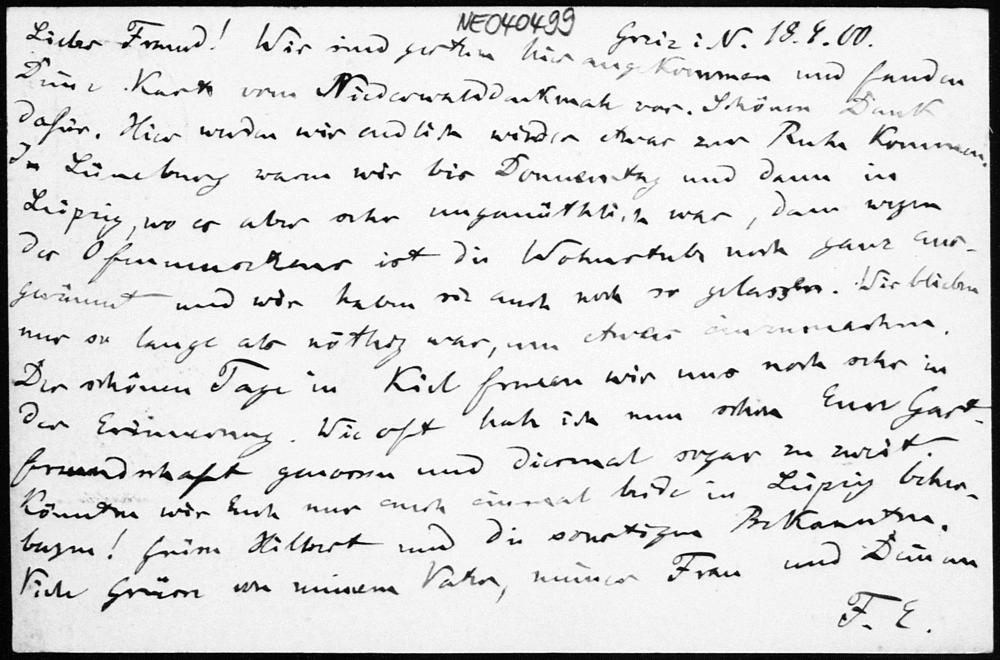 NE040499
Greiz i. V. 18.4.00.
Lieber Freund! Wir sind gestern hier angekommen und fanden
Deine Karte vom Niederwalddenkmal vor. Schönen Dank
dafür. Hier werden wir endlich wieder etwas zur Ruhe kommen.
In Lüneburg waren wir bis Donnerstag und dann in
Leipzig, wo es aber sehr ungemüthlich war, denn wegen
des Ofenumsetzens ist die Wohnstube noch ganz aus-
geräumt und wir haben sie auch noch so gelassen. Wir blieben
nur so lange als nöthig war, um etwas einzumachen.
Der schönen Tage in Kiel freuen wir uns noch sehr in
der Erinnerung. Wie oft hab ich nun schon Eure Gast-
freundschaft genossen und diesmal sogar zu zweit.
Könnten wir Euch nur auch einmal beide in Leipzig beher-
bergen! Grüsse Hilbert und die sonstigen Bekannten.
Viele Grüsse von meinem Vater, meiner Frau und Deinem
F. E.